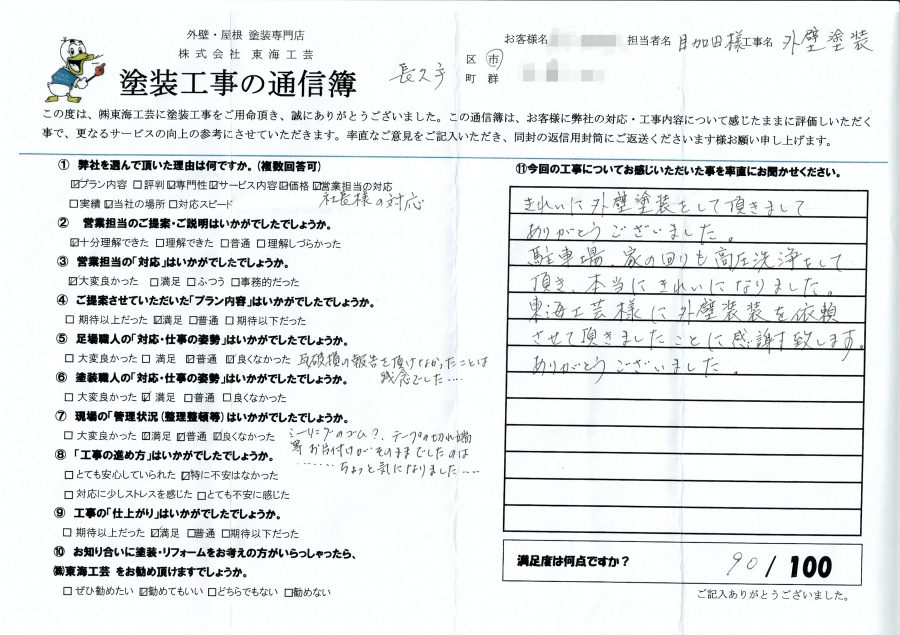 外壁・屋根 塗装専門店
株式会社 東海工芸
塗装工事の通信簿
長久手
区 市
町 群
お客様名
担当者名 目加田様
工事名 外壁塗装
この度は、㈱東海工芸に塗装工事をご用命頂き、誠にありがとうございました。この通信簿は、お客様に弊社の対応・工事内容について感じたままに評価しいただく
事で、更なるサービスの向上の参考にさせていただきます。率直なご意見をご記入いただき、同封の返信用封筒にご返送くださいます様お願い申し上げます。
① 弊社を選んで頂いた理由は何ですか。(複数回答可)
☑プラン内容 □評判 ☑専門性 ☑サービス内容 ☑価格 ☑営業担当の対応
社長様の対応
□実績 ☑当社の場所 □対応スピード
② 営業担当のご提案・ご説明はいかがでしたでしょうか。
☑十分理解できた □理解できた □普通 □理解しづらかった
③ 営業担当の「対応」はいかがでしたでしょうか。
☑大変良かった □満足 □ふつう □事務的だった
④ ご提案させていただいた「プラン内容」はいかがでしたでしょうか。
□期待以上だった ☑満足 □普通 □期待以下だった
⑤ 足場職人の「対応・仕事の姿勢」はいかがでしたでしょうか。
□大変良かった □満足 ☑普通 ☑良くなかった
瓦破損の報告を頂けなかったことは
残念でした‥‥
⑥ 塗装職人の「対応・仕事の姿勢」はいかがでしたでしょうか。
□大変良かった ☑満足 □普通 □良くなかった
⑦ 現場の「管理状況(整理整頓等)はいかがでしたでしょうか。
□大変良かった ☑満足 ☑普通 ☑良くなかった
シーリングのゴム?、テープの切れ端
等お片付けがそのままでしたのは
‥‥‥ちょっと気になりました‥‥
⑧ 「工事の進め方」はいかがでしたでしょうか。
□とても安心していられた ☑特に不安はなかった
□対応に少しストレスを感じた □とても不安に感じた
⑨ 工事の「仕上がり」はいかがでしたでしょうか。
□期待以上だった ☑満足 □普通 □期待以下だった
⑩ お知り合いに塗装・リフォームをお考えの方がいらっしゃったら、
㈱東海工芸 をお勧め頂けますでしょうか。
□ぜひ勧めたい ☑勧めてもいい □どちらでもない □勧めない
⑪今回の工事についてお感じいただいた事を率直にお聞かせください。
きれいに外壁塗装をして頂きまして
ありがとうございました。
駐車場、家の回りも高圧洗浄をして
頂き、本当にきれいになりました。
東海工芸様に外壁装装を依頼
させて頂きましたことに感謝す致します。
ありがとうございました。
満足度は何点ですか?
90/100
ご記入ありがとうございました。